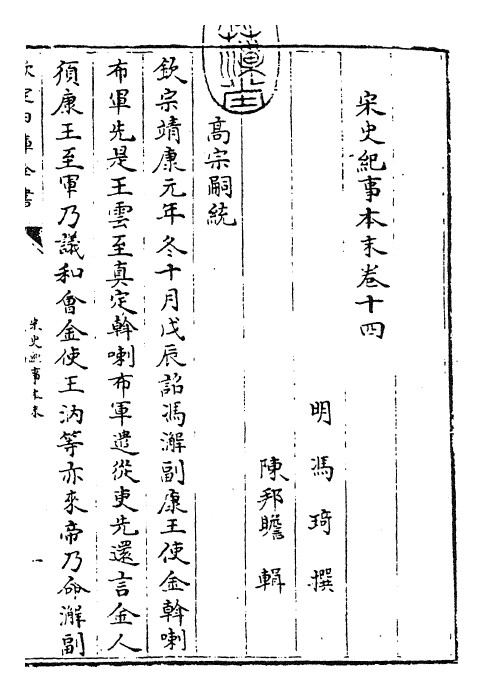 宋史紀事本末卷十四
明馮琦撰
陳邦瞻輯
高宗嗣統
欽宗靖康元年冬十月戊辰詔馮澥副康王使金斡喇
布軍先是王雲至真定斡喇布軍遣從吏先還言金人
須康王至軍乃議和會金使王汭等亦來帝乃命澥副
欽定四庫全書
宋史紀事本末
一